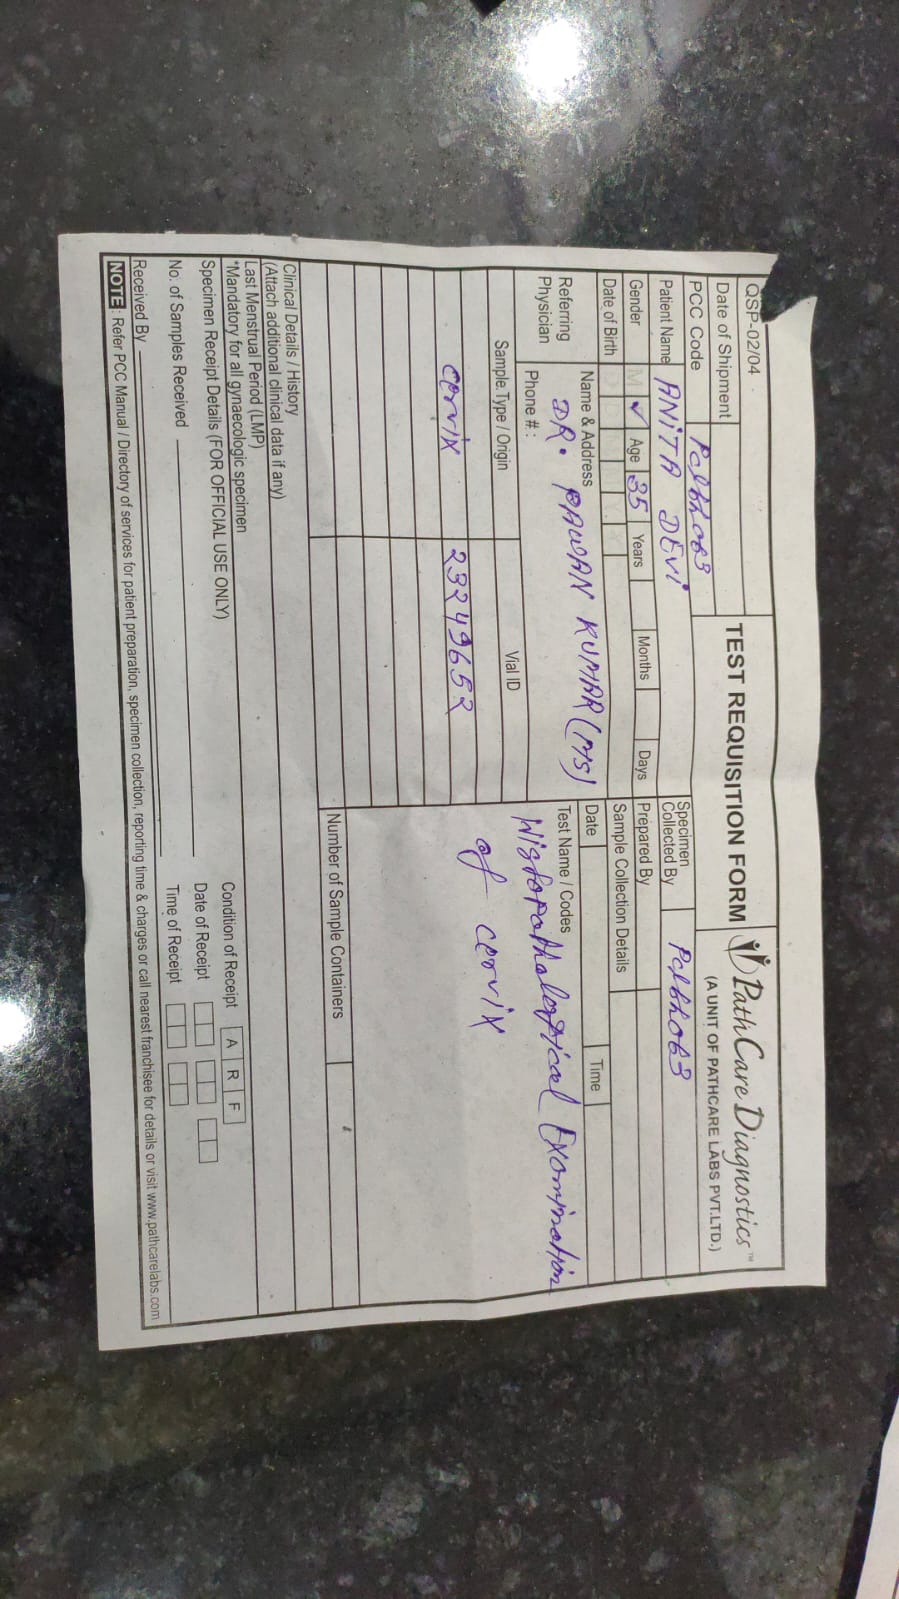 QSP-02/04
TEST REQUISITION FORM
PathCare Diagnostics™
(A UNIT OF PATHCARE LABS PVT.LTD.)
Date of Shipment
PCC Code Pclbh063
Specimen Collected By Pclbh063
Patient Name ANITA DEVI
Prepared By
Gender M ✓ Age 35 Years Months Days
Sample Collection Details
Date of Birth
Date Time
Referring Physician
Name & Address
DR. PAWAN KUMAR (MS)
Phone # :
Test Name / Codes
Histopathological Examination
of cervix
Sample Type / Origin Vial ID
cervix 23249652
Number of Sample Containers
Clinical Details / History
(Attach additional clinical data if any)
Last Menstrual Period (LMP)
*Mandatory for all gynaecologic specimen
Specimen Receipt Details (FOR OFFICIAL USE ONLY)
Condition of Receipt A R F
No. of Samples Received
Date of Receipt
Received By
Time of Receipt
NOTE : Refer PCC Manual / Directory of services for patient preparation, specimen collection, reporting time & charges or call nearest franchisee for details or visit www.pathcarelabs.com